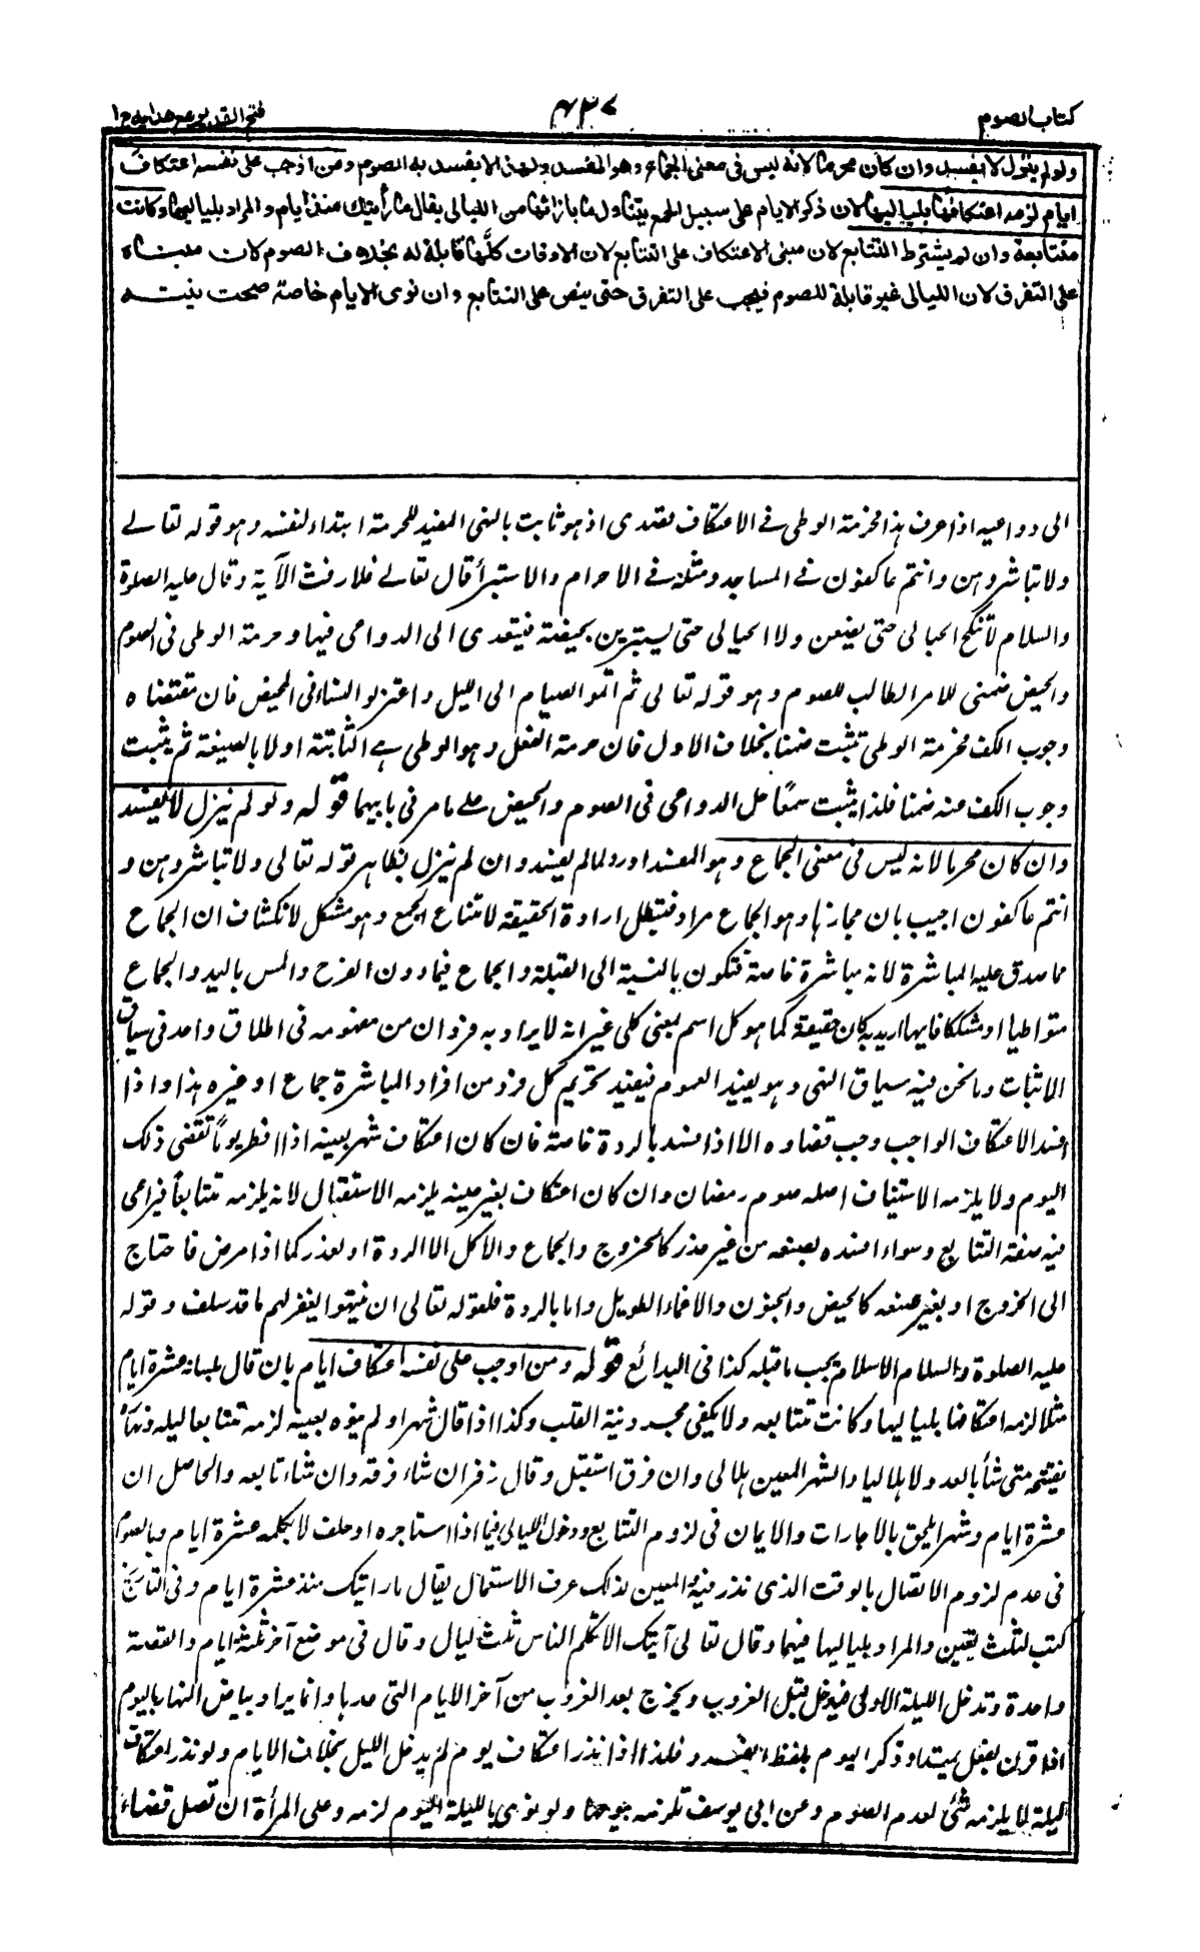 كتاب الصوم
٤٣٧
فتح القدير مع هدايه ج ١
ولو لم ينزل لا يفسد وان كان محرما لانه ليس فى معنى الجماع وهو المفسد ولهذا لا يفسد به الصوم ومن اوجب على نفسه اعتكاف
ايام لزمه اعتكافها بلياليها لان ذكر الايام على سبيل الجمع يتناول ما بازائها من الليالى يقال ما رأيتك منذ ايام والمراد بلياليها وكانت
متتابعة وان لم يشترط التتابع لان مبنى الاعتكاف على التتابع لان الاوقات كلها قابلة له بخلاف الصوم لان مبناه
على التفرق لان الليالى غير قابلة للصوم فيجب على التفرق حتى ينص على التتابع وان نوى الايام خاصة صحت نيته
الى دواعيه اذا عرف هذا فحرمة الوطى فے الاعتكاف تعتدى اذ هو ثابت بالنهى المفيد للحرمة ابتداء لنفسه وهو قوله تعالے
ولا تباشروهن وانتم عاكفون فے المساجد ومثله فے الاحرام والاستبرأ قال تعالے فلا رفث الآية وقال عليه الصلوة
والسلام لا تنكح الحبالى حتى يضعن ولا الحيالى حتى يستبرين بحيضة فيتعدى الى الدواعى فيها وحرمة الوطى فى الصوم
والحيض ضمنى للامر الطالب للصوم وهو قوله تعالى ثم اتموا الصيام الى الليل واعتزلوا النساء فى المحيض فان مقتضاه
وجوب الكف فحرمة الوطى تثبت ضمنا بخلاف الاول فان حرمة الفعل وهو الوطى هے الثابتة اولا بالصيغة ثم يثبت
وجوب الكف عنه ضمنا فلذا يثبت سمعا حل الدواعى فى الصوم والحيض علے ما مر فى بابيهما قوله ولو لم ينزل لا يفسد
وان كان محرما لانه ليس فى معنى الجماع وهو المفسد اورد لما لم يفسد وان لم ينزل بظاهر قوله تعالى ولا تباشروهن و
انتم عاكفون اجيب بان مجازها وهو الجماع مراد فتبطل ارادة الحقيقة لامتناع الجمع وهو مشكل لانكشاف ان الجماع
مما صدق عليه المباشرة لانه مباشرة خاصة فتكون بالنسبة الى القبلة والجماع فيما دون الفرج والمس باليد والجماع
متواطيا او مشككا فايها اريد به كان حقيقة كما هو كل اسم لمعنى كلى غير انه لا يراد به فردان من مفهومه فى اطلاق واحد فى سياق
الاثبات وما نحن فيه سياق النهى وهو يفيد العموم فيفيد تحريم كل فرد من افراد المباشرة جماع او غيره هذا واذا
افسد الاعتكاف الواجب وجب قضاوه الا اذا فسد بالردة خاصة فان كان اعتكاف شهر بعينه اذا افطر يوما تقضى ذلك
اليوم ولا يلزمه الاستيناف اصله صوم رمضان وان كان اعتكاف بغير عينه يلزمه الاستقبال لانه يلزمه متتابعا فيراعى
فيه صفة التتابع وسواء افسده بصنعه من غير عذر كالخروج والجماع والاكل الا الردة او لعذر كما اذا مرض فاحتاج
الى الخروج او بغير صنعه كالحيض والجنون والاغماء الطويل واما بالردة فلقوله تعالى ان ينتهوا يغفر لهم ما قد سلف وقوله
عليه الصلوة والسلام الاسلام يجب ما قبله كذا فى البدائع قوله ومن اوجب على نفسه اعتكاف ايام بان قال بلسانه عشرة ايام
مثلا لزمه اعتكافها بلياليها وكانت متتابعه ولا يكفى مجرد نية القلب وكذا اذا قال شهرا ولم ينوه بعينه لزمه متتابعا ليله ونهاره
يفتتحه متى شأ بالعدد لا هلاليا والشهر المعين هلالى وان فرق استقبل وقال زفر ان شاء فرقه وان شاء تابعه والحاصل ان
عشرة ايام وشهر يلحق بالاجارات والايمان فى لزوم التتابع ودخول الليالى فيما اذا استاجره او حلف لا يكلمه عشرة ايام وبالصوم
فى عدم لزوم الاتصال بالوقت الذى نذر فيه والمعين لذلك عرف الاستعمال يقال ما رايتك منذ عشرة ايام وفى التاريخ
كتب لثلث بقين والمراد بلياليها فيهما وقال تعالى آيتك الا تكلم الناس ثلث ليال وقال فى موضع آخر ثلثة ايام والقصة
واحدة وتدخل الليلة الاولى فيدخل قبل الغروب ويخرج بعد الغروب من آخر الايام التى عدها وانما يراد ببياض النهار باليوم
اذا قرن بفعل يمتد وذكر اليوم بلفظ الفرد فلذا اذا نذر اعتكاف يوم لم يدخل الليل بخلاف الايام ولو نذر اعتكاف
ليلة لا يلزمه شئ لعدم الصوم وعن ابى يوسف تلزمه بيومها ولو نوى بالليلة اليوم لزمه وعلى المرأة ان تصل قضاء